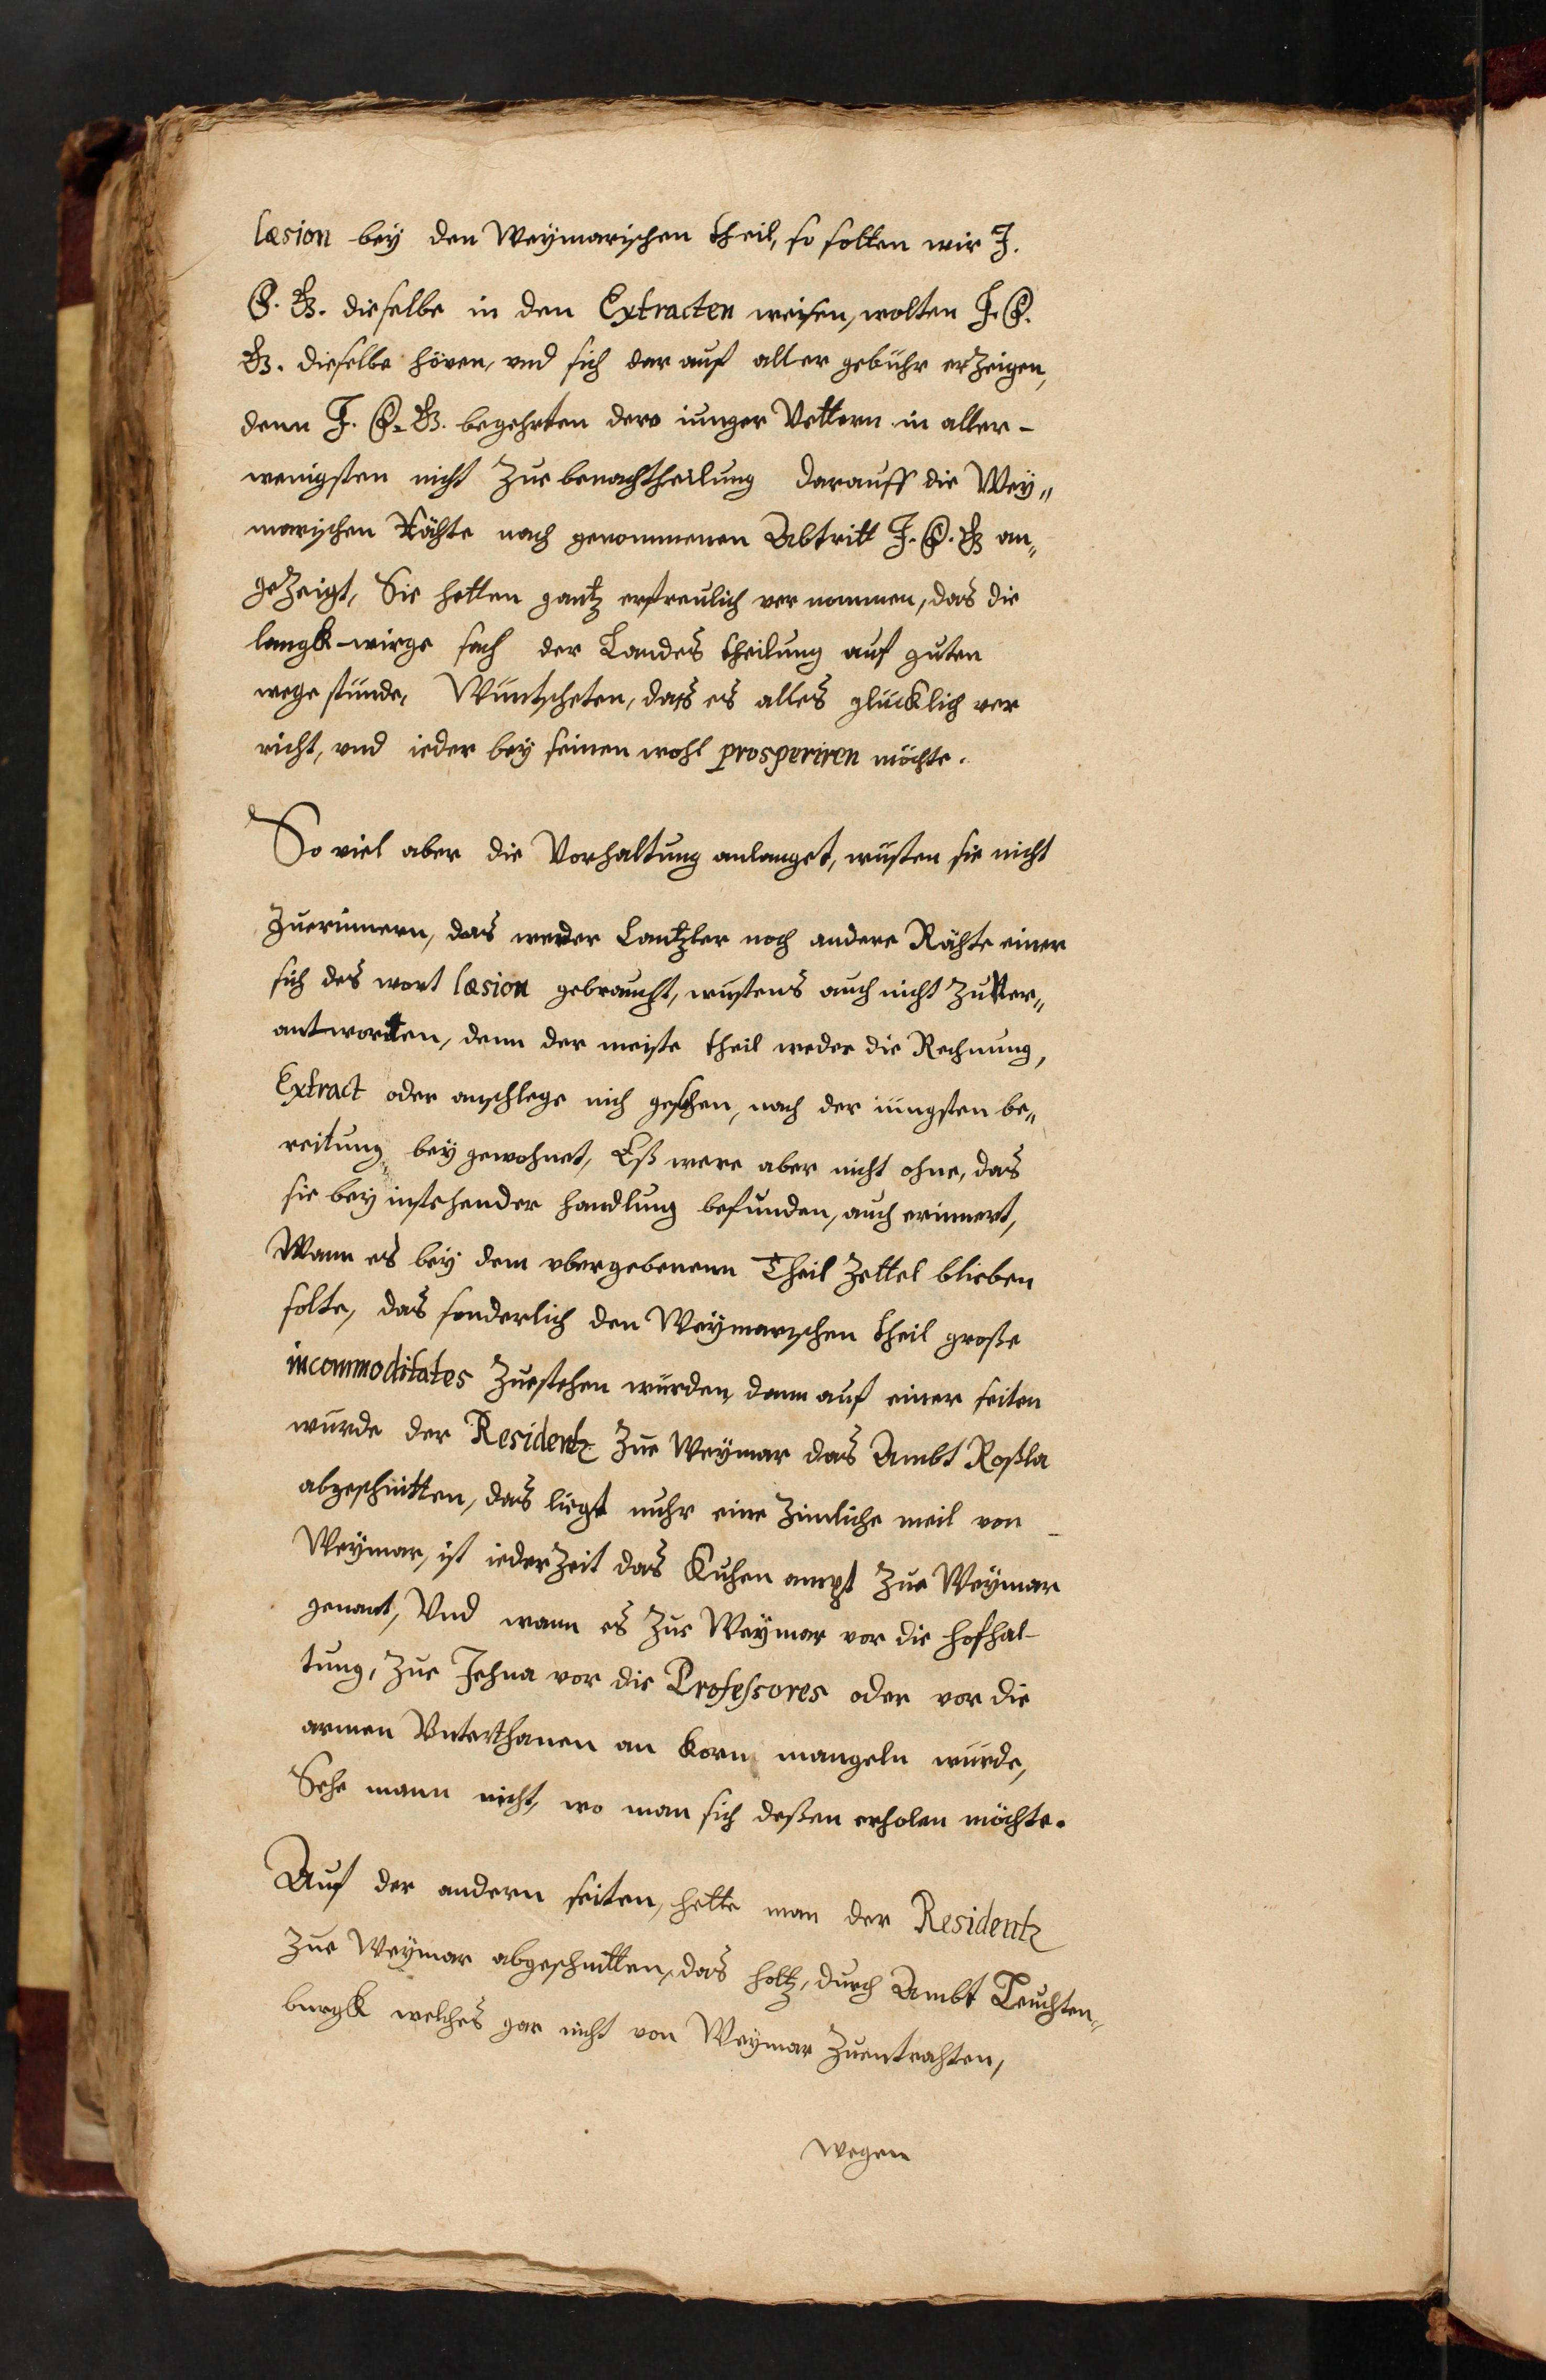 læsion bey den Weymarischen theil, so solten wir J.
C. G. dieselbe in den Extracten weisen, wolten J. C.
G. dieselbe hören, vnd sich dar auf aller gebühr erzeigen,
denn J. C. G. begehrten dero iunger Vettern in aller-
wenigsten nicht Zue benachtheilung darauff die Wey„
marischen Rähte nach genommenen Abtritt J. C. G an„
gezeigt, Sie hetten gantz erfreulich ver nommen, das die
langk-wirge sach der Landes theilung auf guten
wege stünde, Wüntscheten, dass es alles glücklich ver
richt, vnd ieder bey seinen wohl prosperiren möchte.
So viel aber die Vorhaltung anlanget, wüsten sie nicht
Zuerinnern, das weder Cantzler noch andere Rähte einer
sich des wort læsion gebraucht, wüstens auch nicht ZuVer„
antworten, denn der meiste theil weder die Rechnung,
Extract oder anschlege nich gesehen, nach der iüngsten be„
reitung bey gewohnet, Eß were aber nicht ohne, das
sie bey instehender handlung befunden, auch erinnert,
Wann es bey dem vbergebenenn Theil Zettel blieben
solte, das sonderlich den Weymarischen theil große
incommoditates Zuestehen würden, dann auf einer seiten
würde der Residentz Zue Weymar das Ambt Roßla
abgeschnitten, das liegt nuhr eine Zimliche meil von
Weymar, ist ieder Zeit das Kuhen ampt Zue Weymar
genant, Vnd wann es Zue Weymar vor die hofhal-
tung, Zue Jehna vor die Professores oder vor die
armen Vnterthanen an korn mangeln würde,
Sehe mann nicht, wo man sich deßen erholen möchte.
Auf der andern seiten, hette man der Residentz
Zue Weymar abgeschnitten, das holtz, durch Ambt Leuchten„
burgk welches gar nicht von Weymar Zuentrahten,
wegen